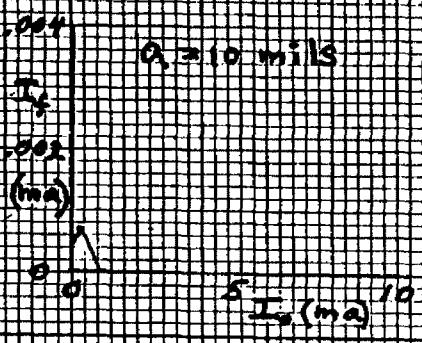 .004
a = 10 mils
I_f
.002
(ma)
0
0 5 10
I_o (ma)